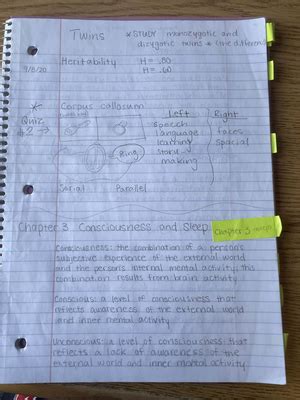 Twins *STUDY monozygotic and
dizygotic twins * (the difference)
Heritability H = .80
9/8/20 H = .60
*
Quiz
#2 →
Corpus callosum
Left Right
Speech
language
learning
story
making
faces
spacial
Ring
Serial Parallel
Chapter 3 Consciousness and Sleep
Chapter 3
Consciousness: the combination of a person's
subjective experience of the external world
and the person's internal mental activity; this
combination results from brain activity
Conscious: a level of consciousness that
reflects awareness of the external world
and inner mental activity
Unconscious: a level of consciousness that
reflects a lack of awareness of the
external world and inner mental activity